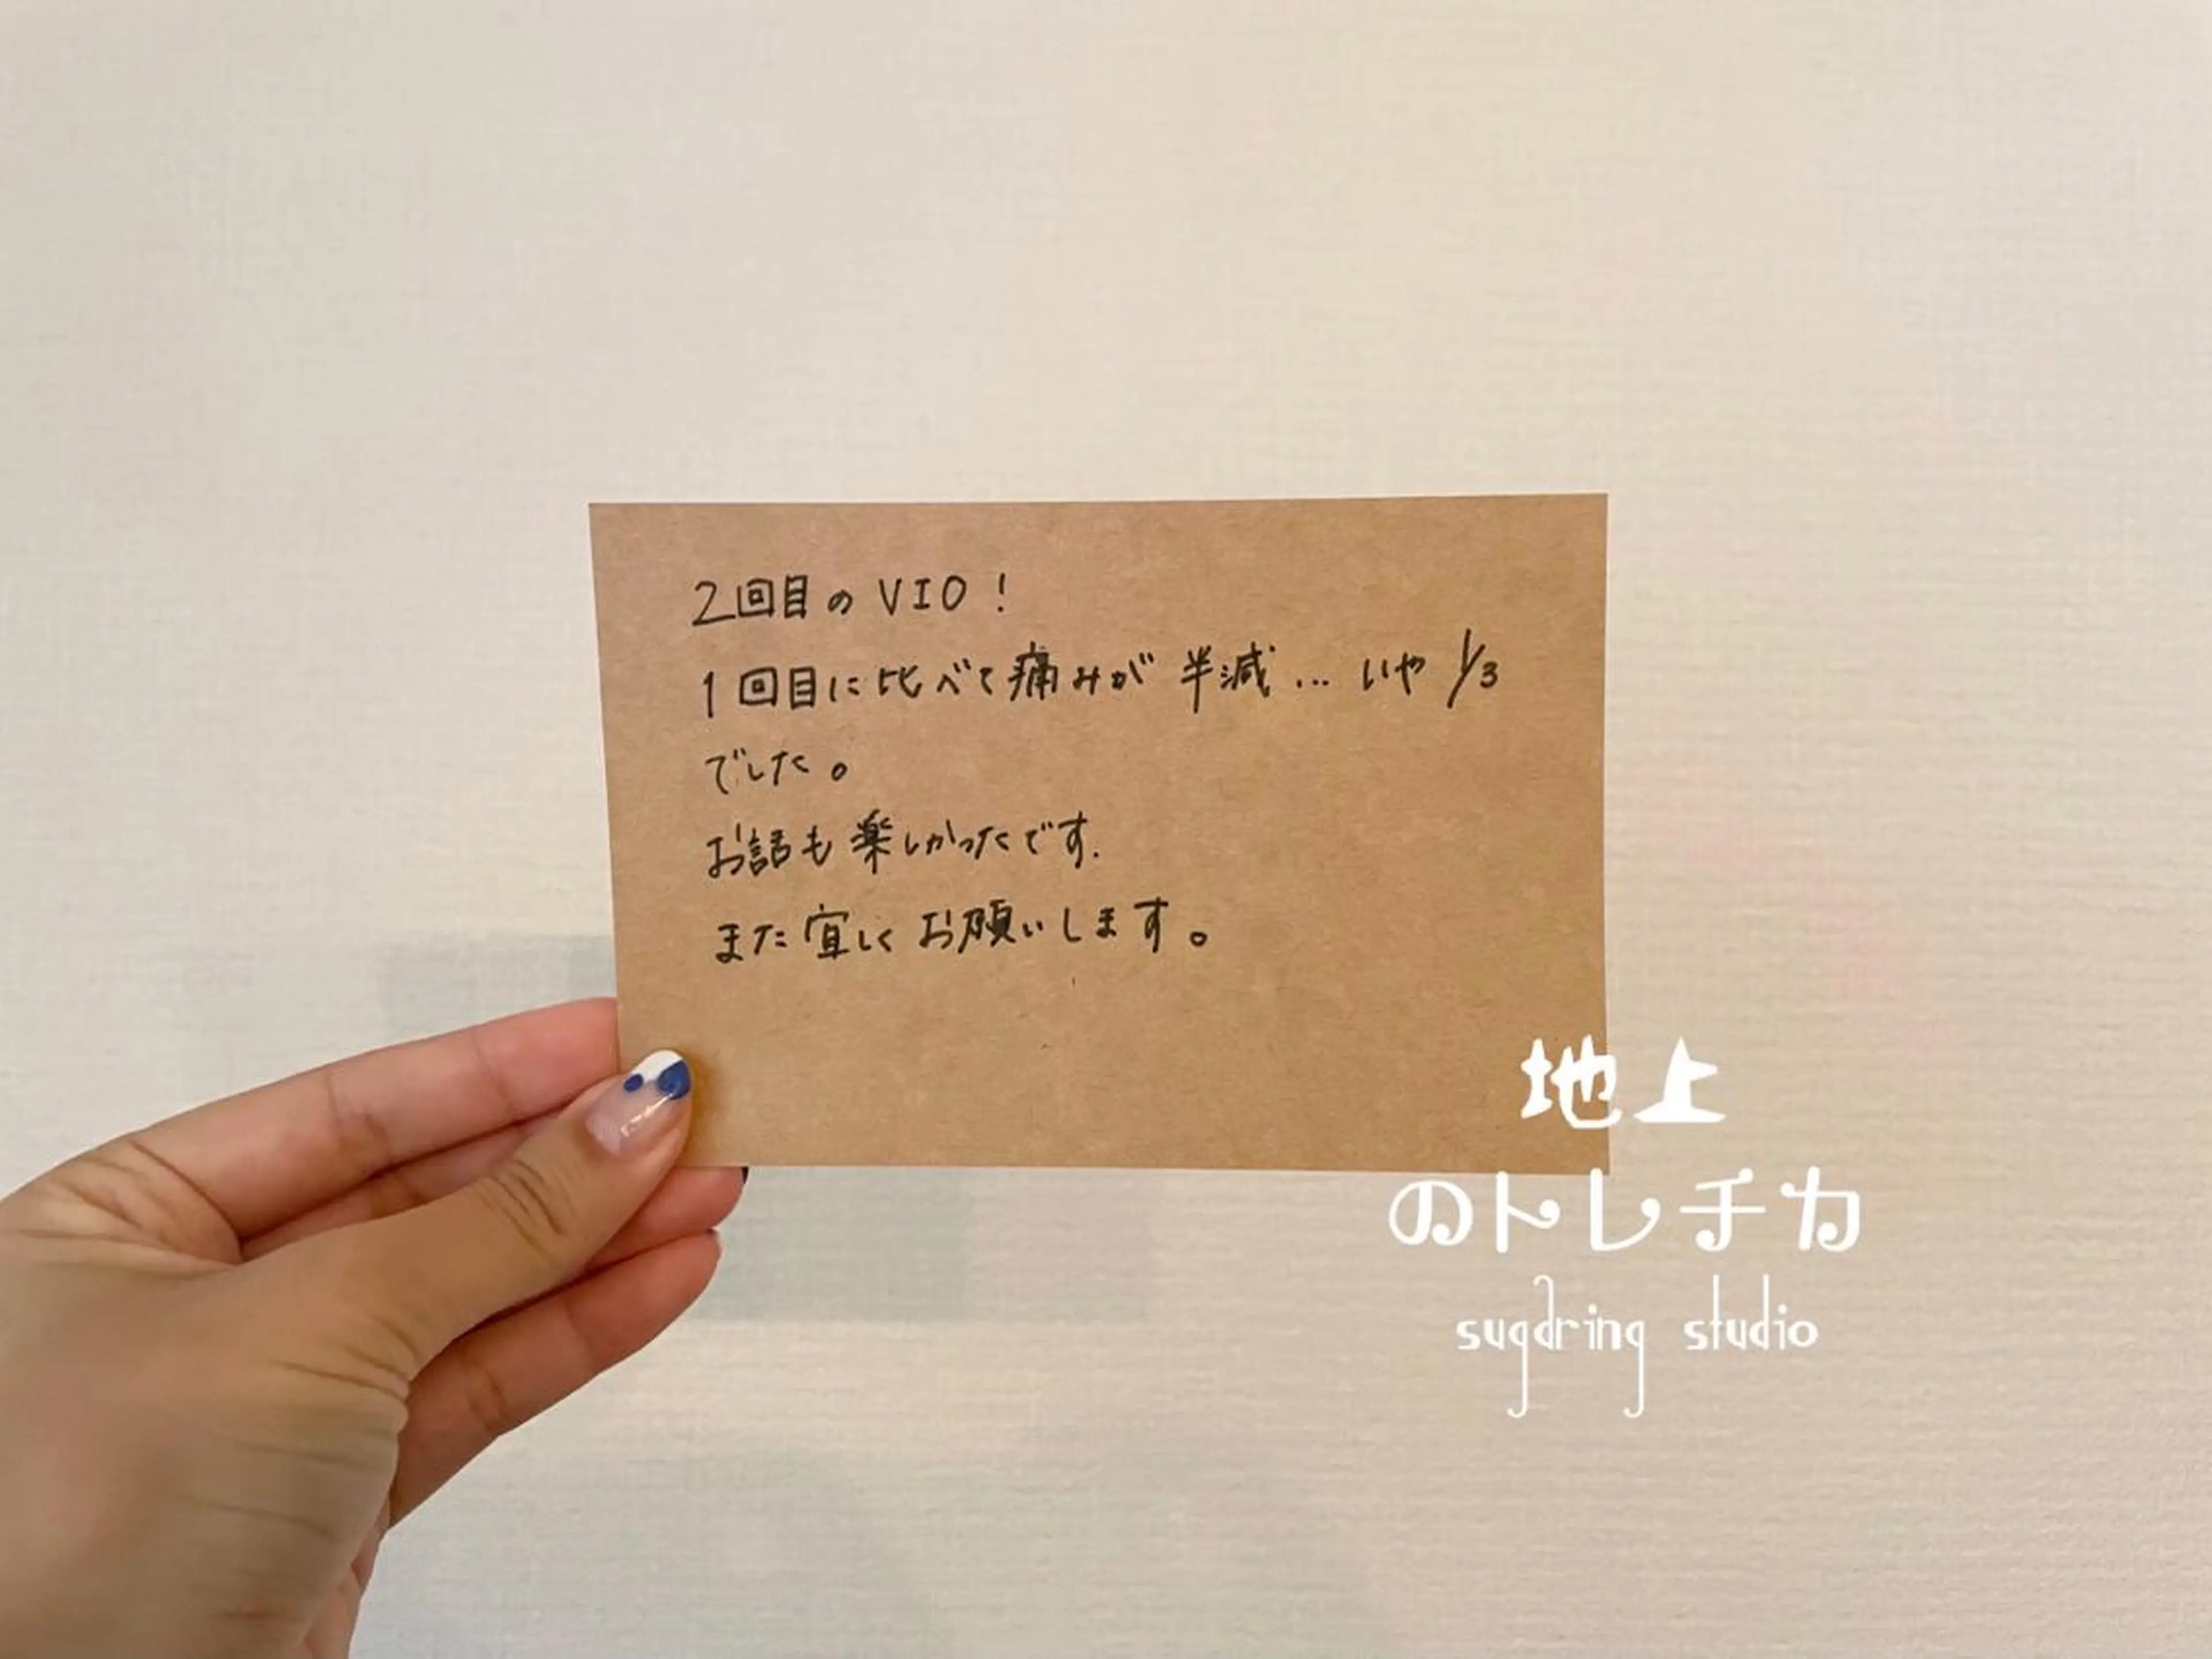 2回目のVIO!
1回目に比べて痛みが半減…いや1/3
でした。
お話も楽しかったです.
また宜しくお願いします。
地上
のトレチカ
sugaring studio